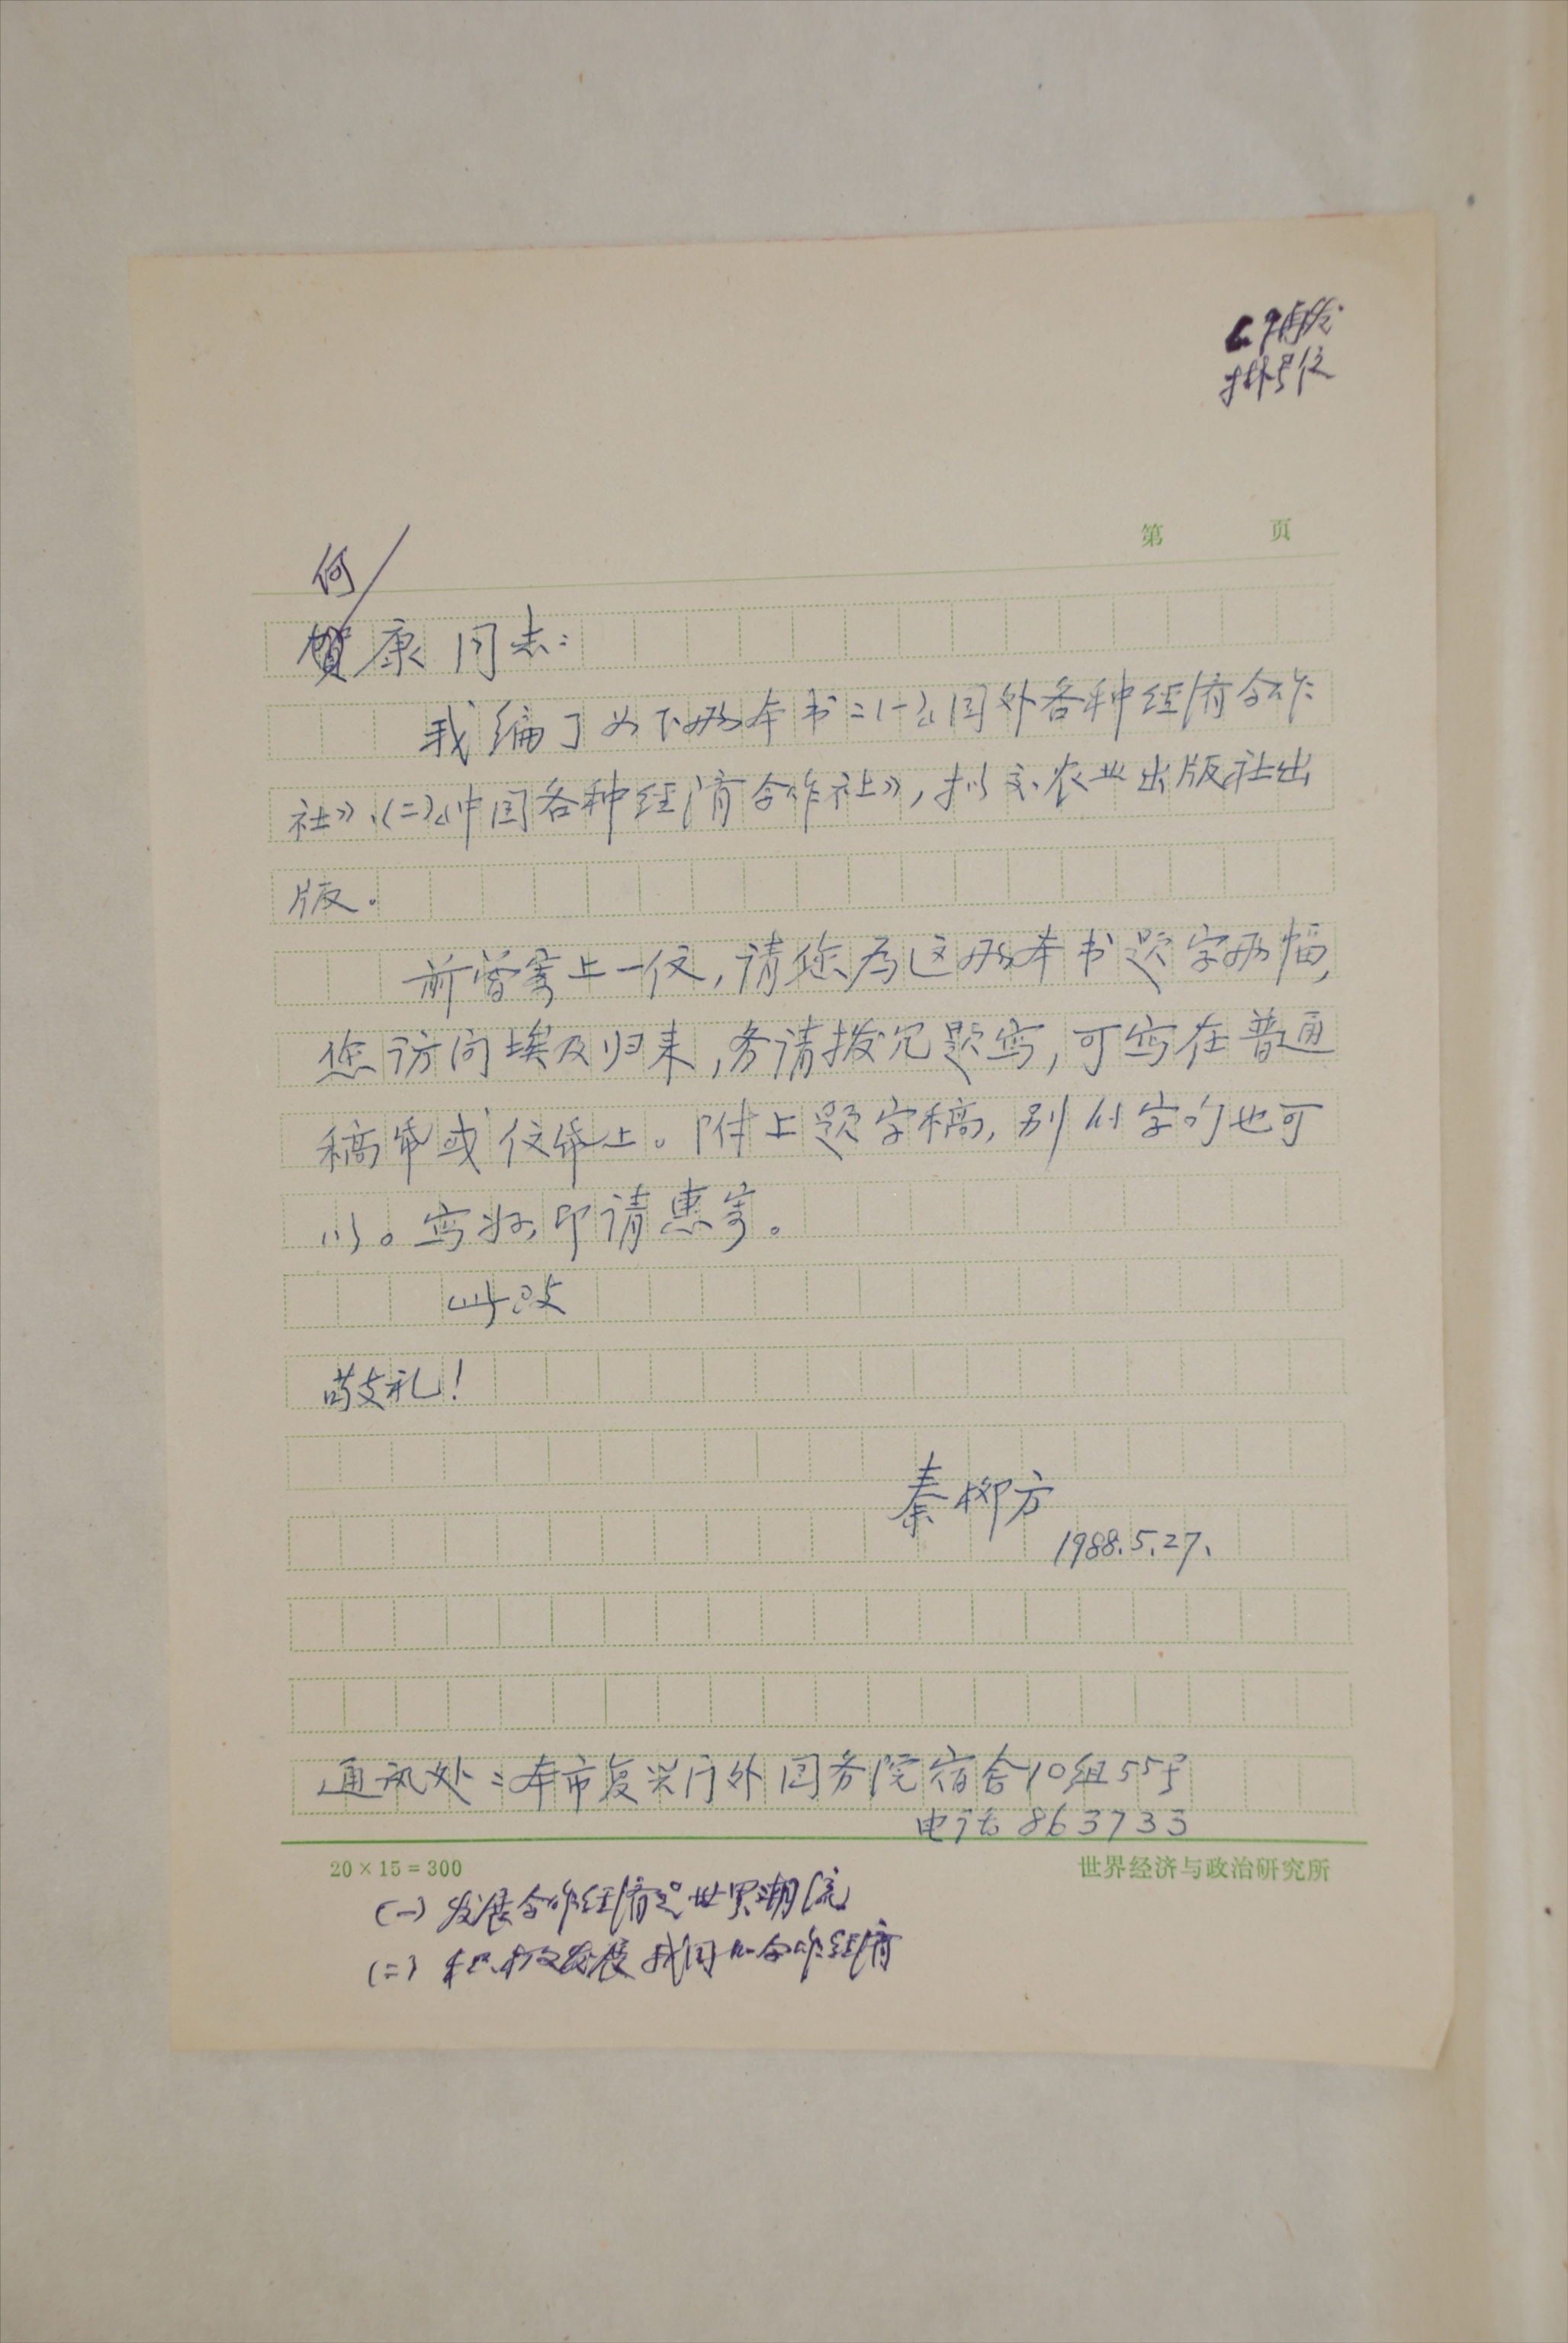 第 页
何
贺康同志：
我编了如下两本书：(一)《国外各种经济合作
社》、(二)《中国各种经济合作社》，拟交农业出版社出
版。
前曾寄上一信，请您为这两本书题字两幅，
您访问埃及归来，务请拨冗题写，可写在普通
稿纸或信纸上。附上题字稿，别的字句也可
以。写好即请惠寄。
此致
敬礼！
秦柳方
1988.5.27.
通讯处：本市复兴门外国务院宿舍10组55号
电话863733
20×15=300
世界经济与政治研究所
(一) 发展合作经济是世界潮流
(二) 积极发展我国的合作经济